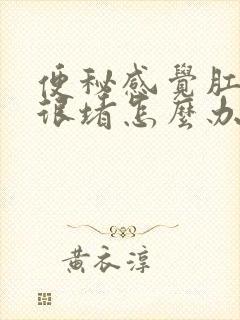 便秘感覺肛
很堵怎麼办
黄衣淳